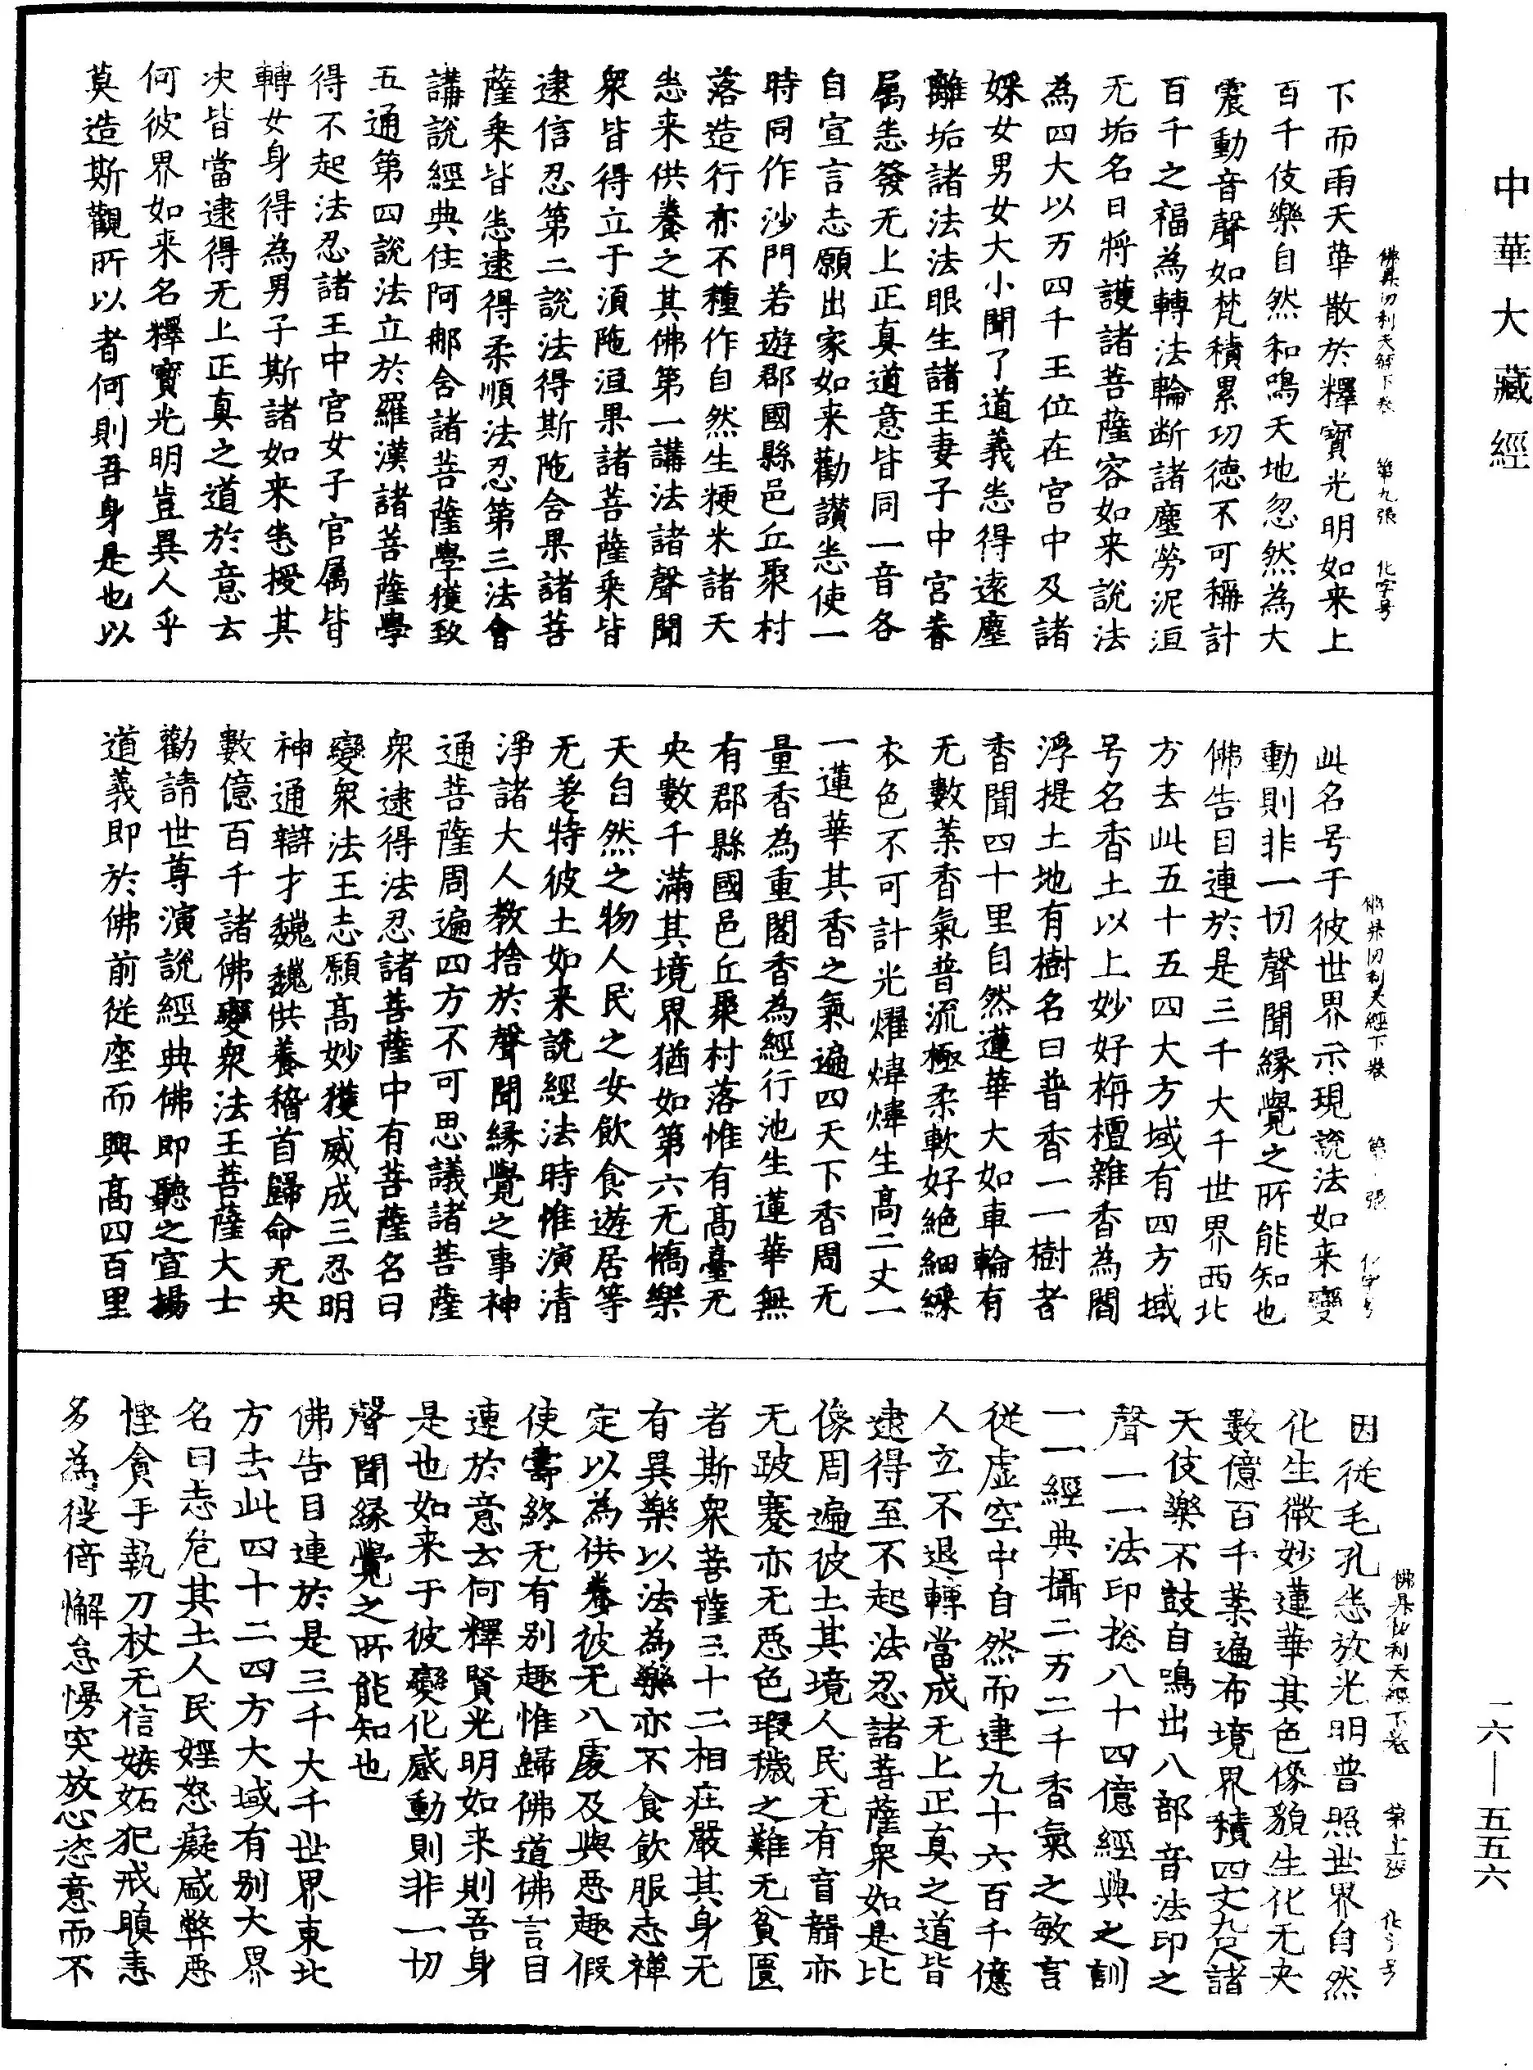 中華大藏經
佛昇忉利天經下卷 第九張 化字号
下而雨天華散於釋寶光明如来上
百千伎樂自然和鳴天地忽然為大
震動音聲如梵積累功德不可稱計
百千之福為轉法輪断諸塵勞泥洹
无垢名曰將護諸菩薩容如来說法
為四大以万四千王位在宮中及諸
婇女男女大小聞了道義悉得遠塵
離垢諸法法眼生諸王妻子中宮眷
属悉發无上正真道意皆同一音各
自宣言志願出家如来勸讃悉使一
時同作沙門若遊郡國縣邑丘聚村
落造行亦不種作自然生粳米諸天
悉来供養之其佛第一講法諸聲聞
衆皆得立于湏陁洹果諸菩薩乘皆
逮信忍第二說法得斯陁含果諸菩
薩乘皆悉逮得柔順法忍第三法會
講說經典住阿那含諸菩薩學獲致
五通第四說法立於羅漢諸菩薩學
得不起法忍諸王中宮女子官属皆
轉女身得為男子斯諸如来悉授其
决皆當逮得无上正真之道於意云
何彼界如来名釋寶光明豈異人乎
莫造斯觀所以者何則吾身是也以
佛昇忉利天經下卷 第十張 化字号
此名号于彼世界示現說法如来變
動則非一切聲聞縁覺之所能知也
佛告目連於是三千大千世界西北
方去此五十五四大方域有四方域
号名香土以上妙好栴檀雜香為閻
浮提土地有樹名曰普香一一樹者
香聞四十里自然蓮華大如車輪有
无數葉香氣普流極柔軟好絶細緣
本色不可計光燿煒煒生高二丈一
一蓮華其香之氣遍四天下香周无
量香為重閣香為經行池生蓮華無
有郡縣國邑丘聚村落惟有高臺无
央數千滿其境界猶如第六无憍樂
天自然之物人民之安飲食遊居等
无差特彼土如来說經法時惟演清
淨諸大人教捨於聲聞縁覺之事神
通菩薩周遍四方不可思議諸菩薩
衆逮得法忍諸菩薩中有菩薩名曰
變衆法王志願高妙獲威成三忍明
神通辯才巍巍供養稽首歸命无央
數億百千諸佛變衆法王菩薩大士
勸請世尊演說經典佛即聽之宣揚
道義即於佛前從座而興高四百里
佛昇忉利天經下卷 第十一張 化字号
因從毛孔悉放光明普照世界自然
化生微妙蓮華其色像貌生化无央
數億百千葉遍布境界積四丈九尺諸
天伎樂不鼓自鳴出八部音法印之
聲一一法印捴八十四億經典之訓
一一經典攝二万二千香氣之敏言
從虛空中自然而逮九十六百千億
人立不退轉當成无上正真之道皆
逮得至不起法忍諸菩薩衆如是比
像周遍彼土其境人民无有盲聾亦
无跛蹇亦无惡色瑕穢之難无貧匱
者斯衆菩薩三十二相莊嚴其身无
有異樂以法為樂亦不食飲服志禅
定以為供養彼无八處及與惡趣假
使壽終无有別趣惟歸佛道佛言目
連於意云何釋賢光明如来則吾身
是也如来于彼變化感動則非一切
聲聞縁覺之所能知也
佛告目連於是三千大千世界東北
方去此四十二四方大域有別大界
名曰志危其土人民婬怒癡威弊惡
慳貪手執刀杖无信嫉妬犯戒瞋恚
多為從倚懈怠慢突放心恣意而不
一六—五五六